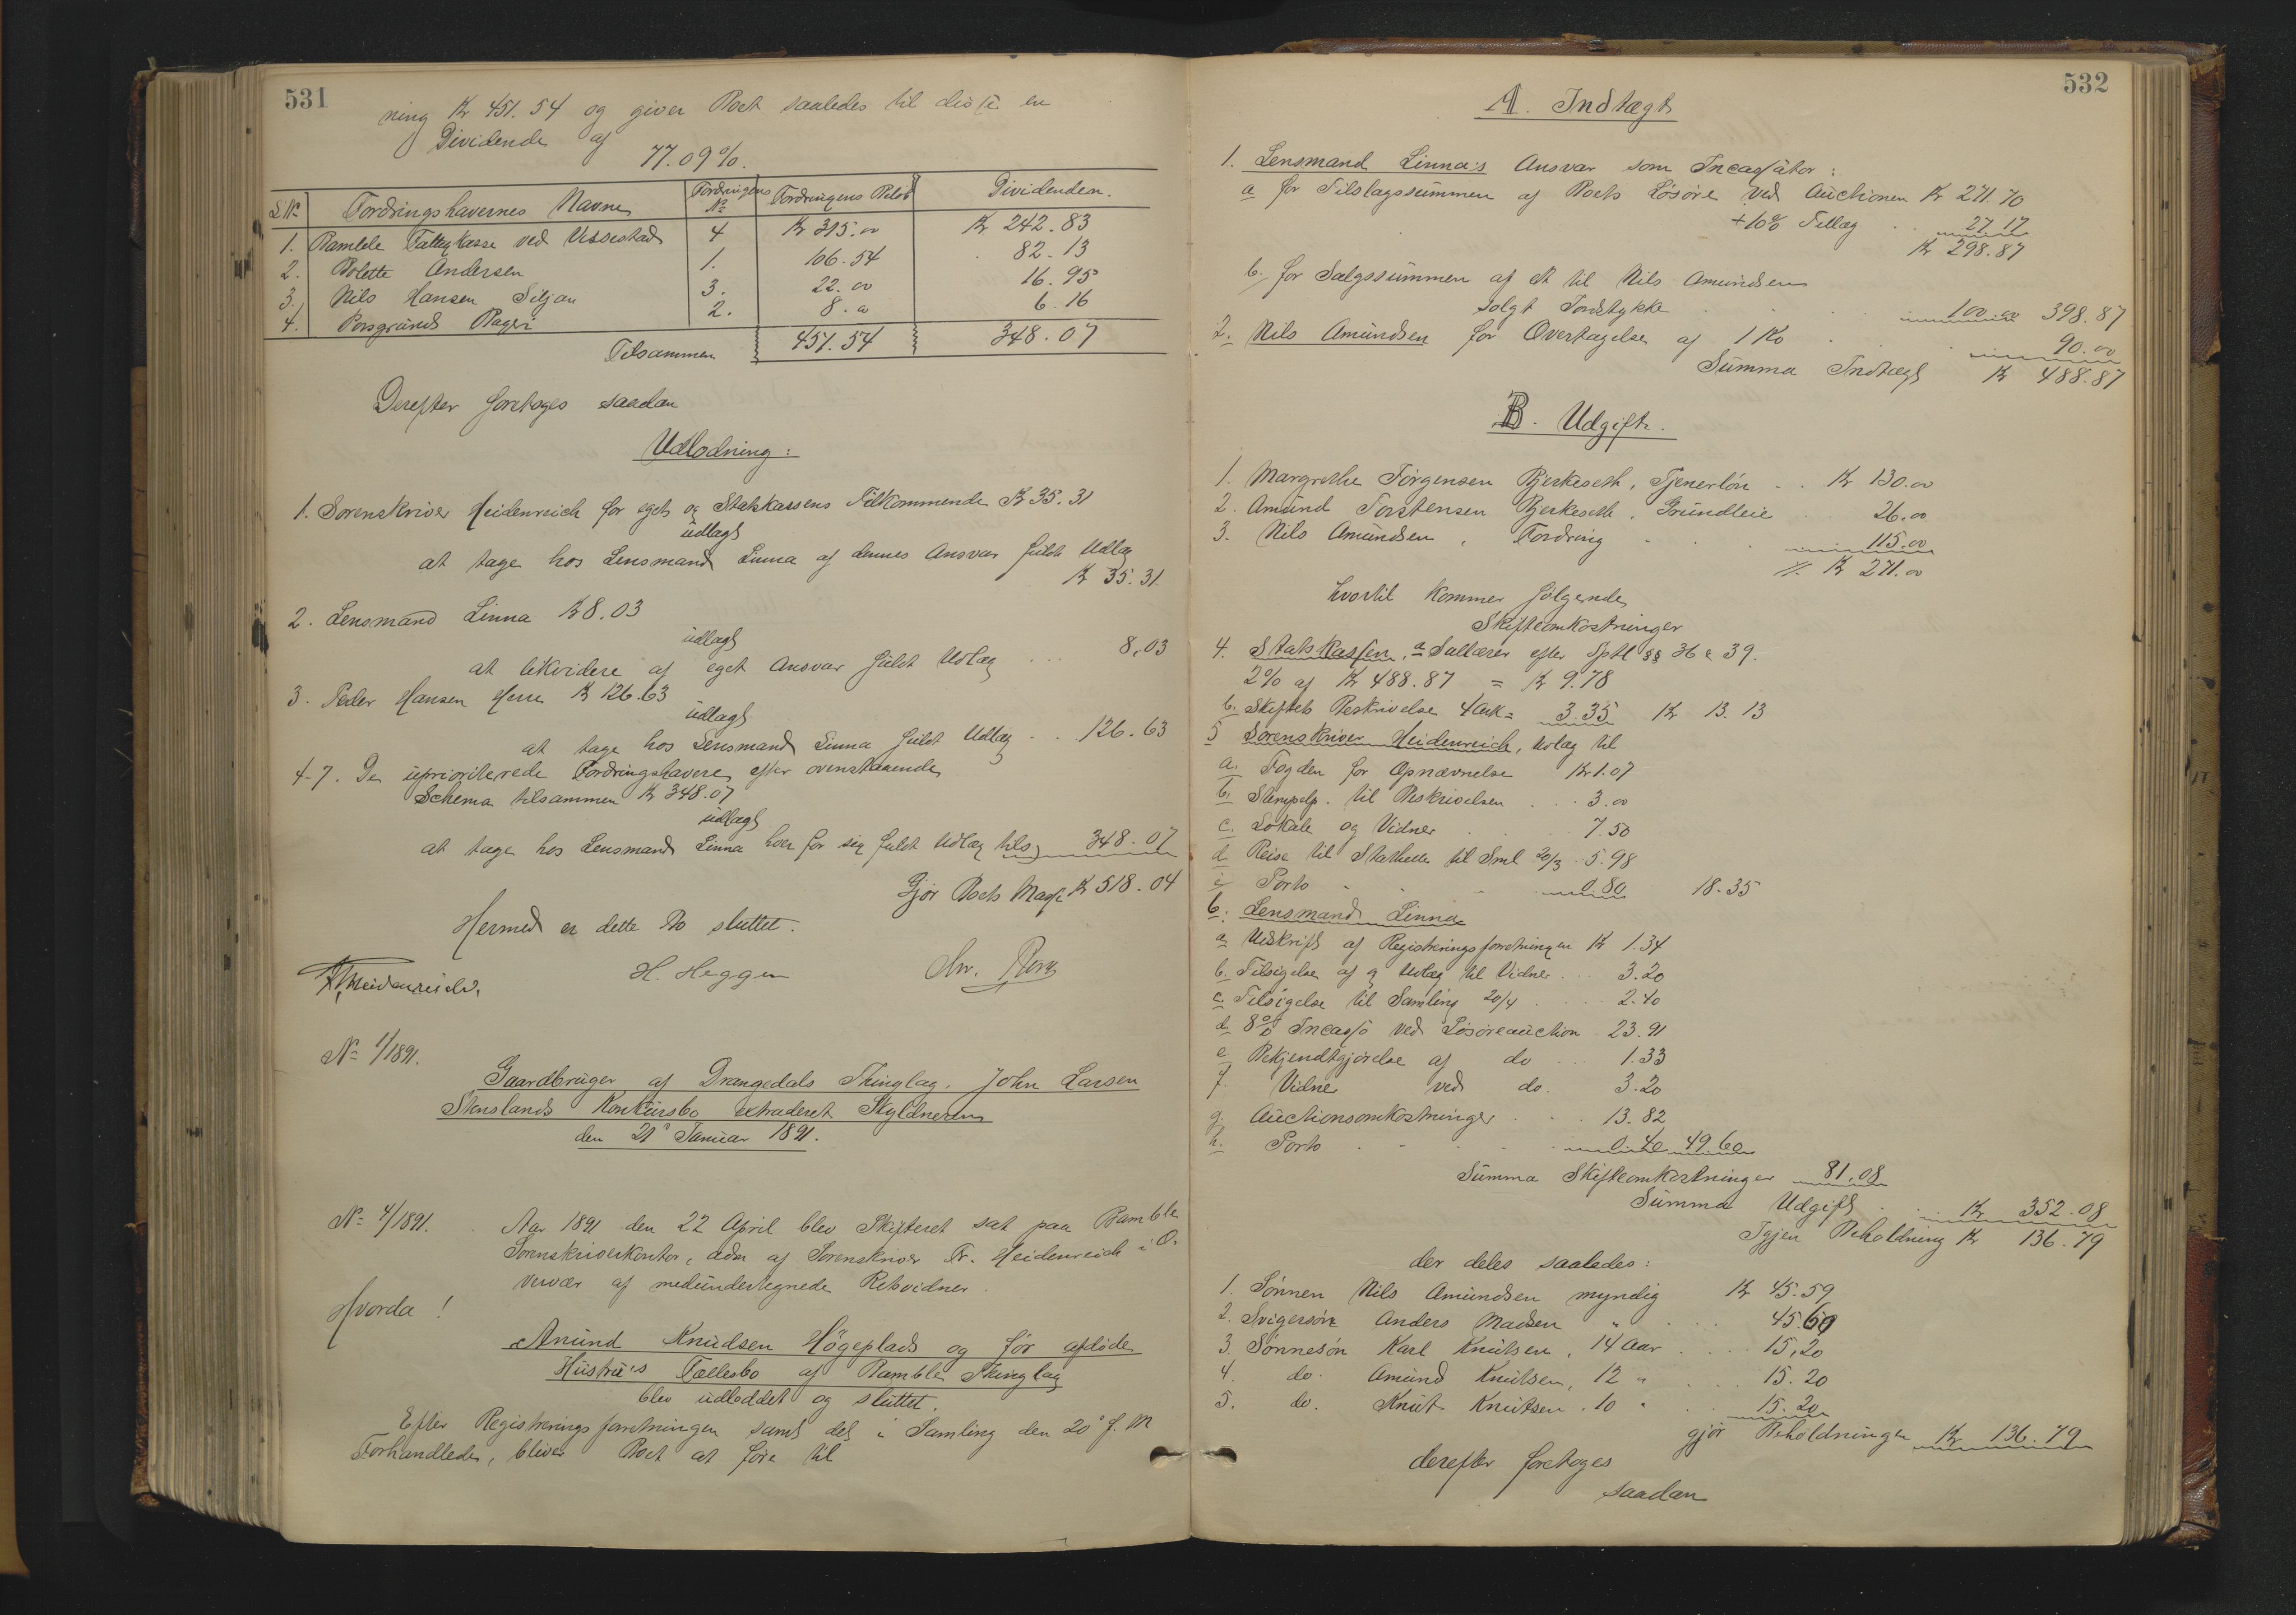 531
ning Kr 451.54 og giver Boet saaledes til disse en
Dividende af
77.09%.
L.No Fordringshavernes Navne Fordringens No Fordringens Beløb Dividenden.
1. Bamble Fattigkasse ved Vissestad 4 Kr 315.00 Kr 242.83
2. Bolette Andersen 1. 106.54 82.13
3. Nils Hansen Siljan 3. 22.00 16.95
4. Porsgrunds Bageri 2. 8.00 6.16
Tilsammen 451.54 348.07
Derefter foretoges saadan
Udlodning:
1. Sorenskriver Heidenreich for eget og Statskassens Tilkommende Kr 35.31
udlagt
at tage hos Lensmand Linna af dennes Ansvar fuldt Udlæg
Kr 35.31
2. Lensmand Linna Kr 8.03
udlagt
at likvidere af eget Ansvar fuldt Udlæg ... 8,03
3. Peder Hansen Herre Kr 126.63
udlagt
at tage hos Lensmand Linna fuldt Udlæg .. 126.63
4-7. De uprioriterede Fordringshavere efter ovenstaaende
Schema tilsammen Kr 348.07
udlagt
at tage hos Lensmand Linna hver for sig fuldt Udlæg tils. 348.07
Gjør Boets Masse Kr 518.04
Hermed er dette Bo sluttet.
Fr. Heidenreich. H. Heggen Chr.
No 1/1891.
Gaardbruger af Drangedals Thinglag. John Larsen
Stenslands Konkursbo extraderet Skyldneren
den 21de Januar 1891.
No 4/1891. Aar 1891 den 22 April blev Skifteret sat paa Bamble
Sorenskriverkontor, adm af Sorenskriver Fr. Heidenreich i O.
vervær af medundertegnede Retsvidner.
Hvorda!
Amund Knudsen Høgeplads og før afdøde
Hustru's Fællesbo af Bamble Thinglag
blev udloddet og sluttet.
Efter Registreringsforretningen samt det i Samling den 20de f. M
Forhandlede, bliver Boet at føre til
532
A. Indtægt
1. Lensmand Linna's Ansvar som Incassator:
a for Tilslagssummen af Boets Løsøre ved Auctionen Kr 271.70
+10% Tillæg .. 27.17
Kr 298.87
b. for Salgssummen af et til Nils Amundsen
solgt Jordstykke 100.00 398.87
2. Nils Amundsen for Overtagelse af 1 Ko 90.00
Summa Indtægt Kr 488.87
B. Udgift.
1. Margrethe Jörgensen Bjerkeseth, Tjenerløn .. Kr 130.00
2. Amund Torstensen Bjerkeseth, Grundleie 26.00
3. Nils Amundsen, Fordring 115.00
./. Kr 271.00
hvortil kommer følgende
Skifteomkostninger
4. Statskassen, a Sallærer efter Sptl §§ 36 & 39.
2% af Kr 488.87 = Kr 9.78
b. Skiftets Beskrivelse 4 Ark = 3.35 Kr 13.13
5 Sorenskriver Heidenreich, Udlæg til
a. Fogden for Opnævnelse Kr 1.07
b. Stempelp. til Beskrivelsen ... 3.00
c. Lokale og Vidner 7.50
d Reise til Stathelle til Sml 20/3 5.98
e Porto 0.80 18.35
6. Lensmand Linna
a Udskrift af Registreringsforretningen Kr 1.34
b. Tilsigelse af og Udlæg til Vidner .. 3.20
c. Tilsigelse til Samling 20/4 2.40
d 8% Incasso ved Løsøreauction 23.91
e Bekjendtgjørelse af do .. 1.33
f. Vidner ved do. 3.20
g. Auctionsomkostninger 13.82
h. Porto 0.40 49.60
Summa Skifteomkostninger 81.08
Summa Udgift Kr 352.08
Igjen Beholdning Kr 136.79
der deles saaledes:
1. Sønnen Nils Amundsen myndig Kr 45.59
2. Svigersøn Anders Madsen " 45.60
3. Sønnesøn Karl Knutsen, 14 Aar 15,20
4. do. Amund Knutsen, 12 " 15.20
5. do. Knut Knutsen. 10 " 15.20
gjør Beholdningen Kr 136.79
derefter foretoges
saadan